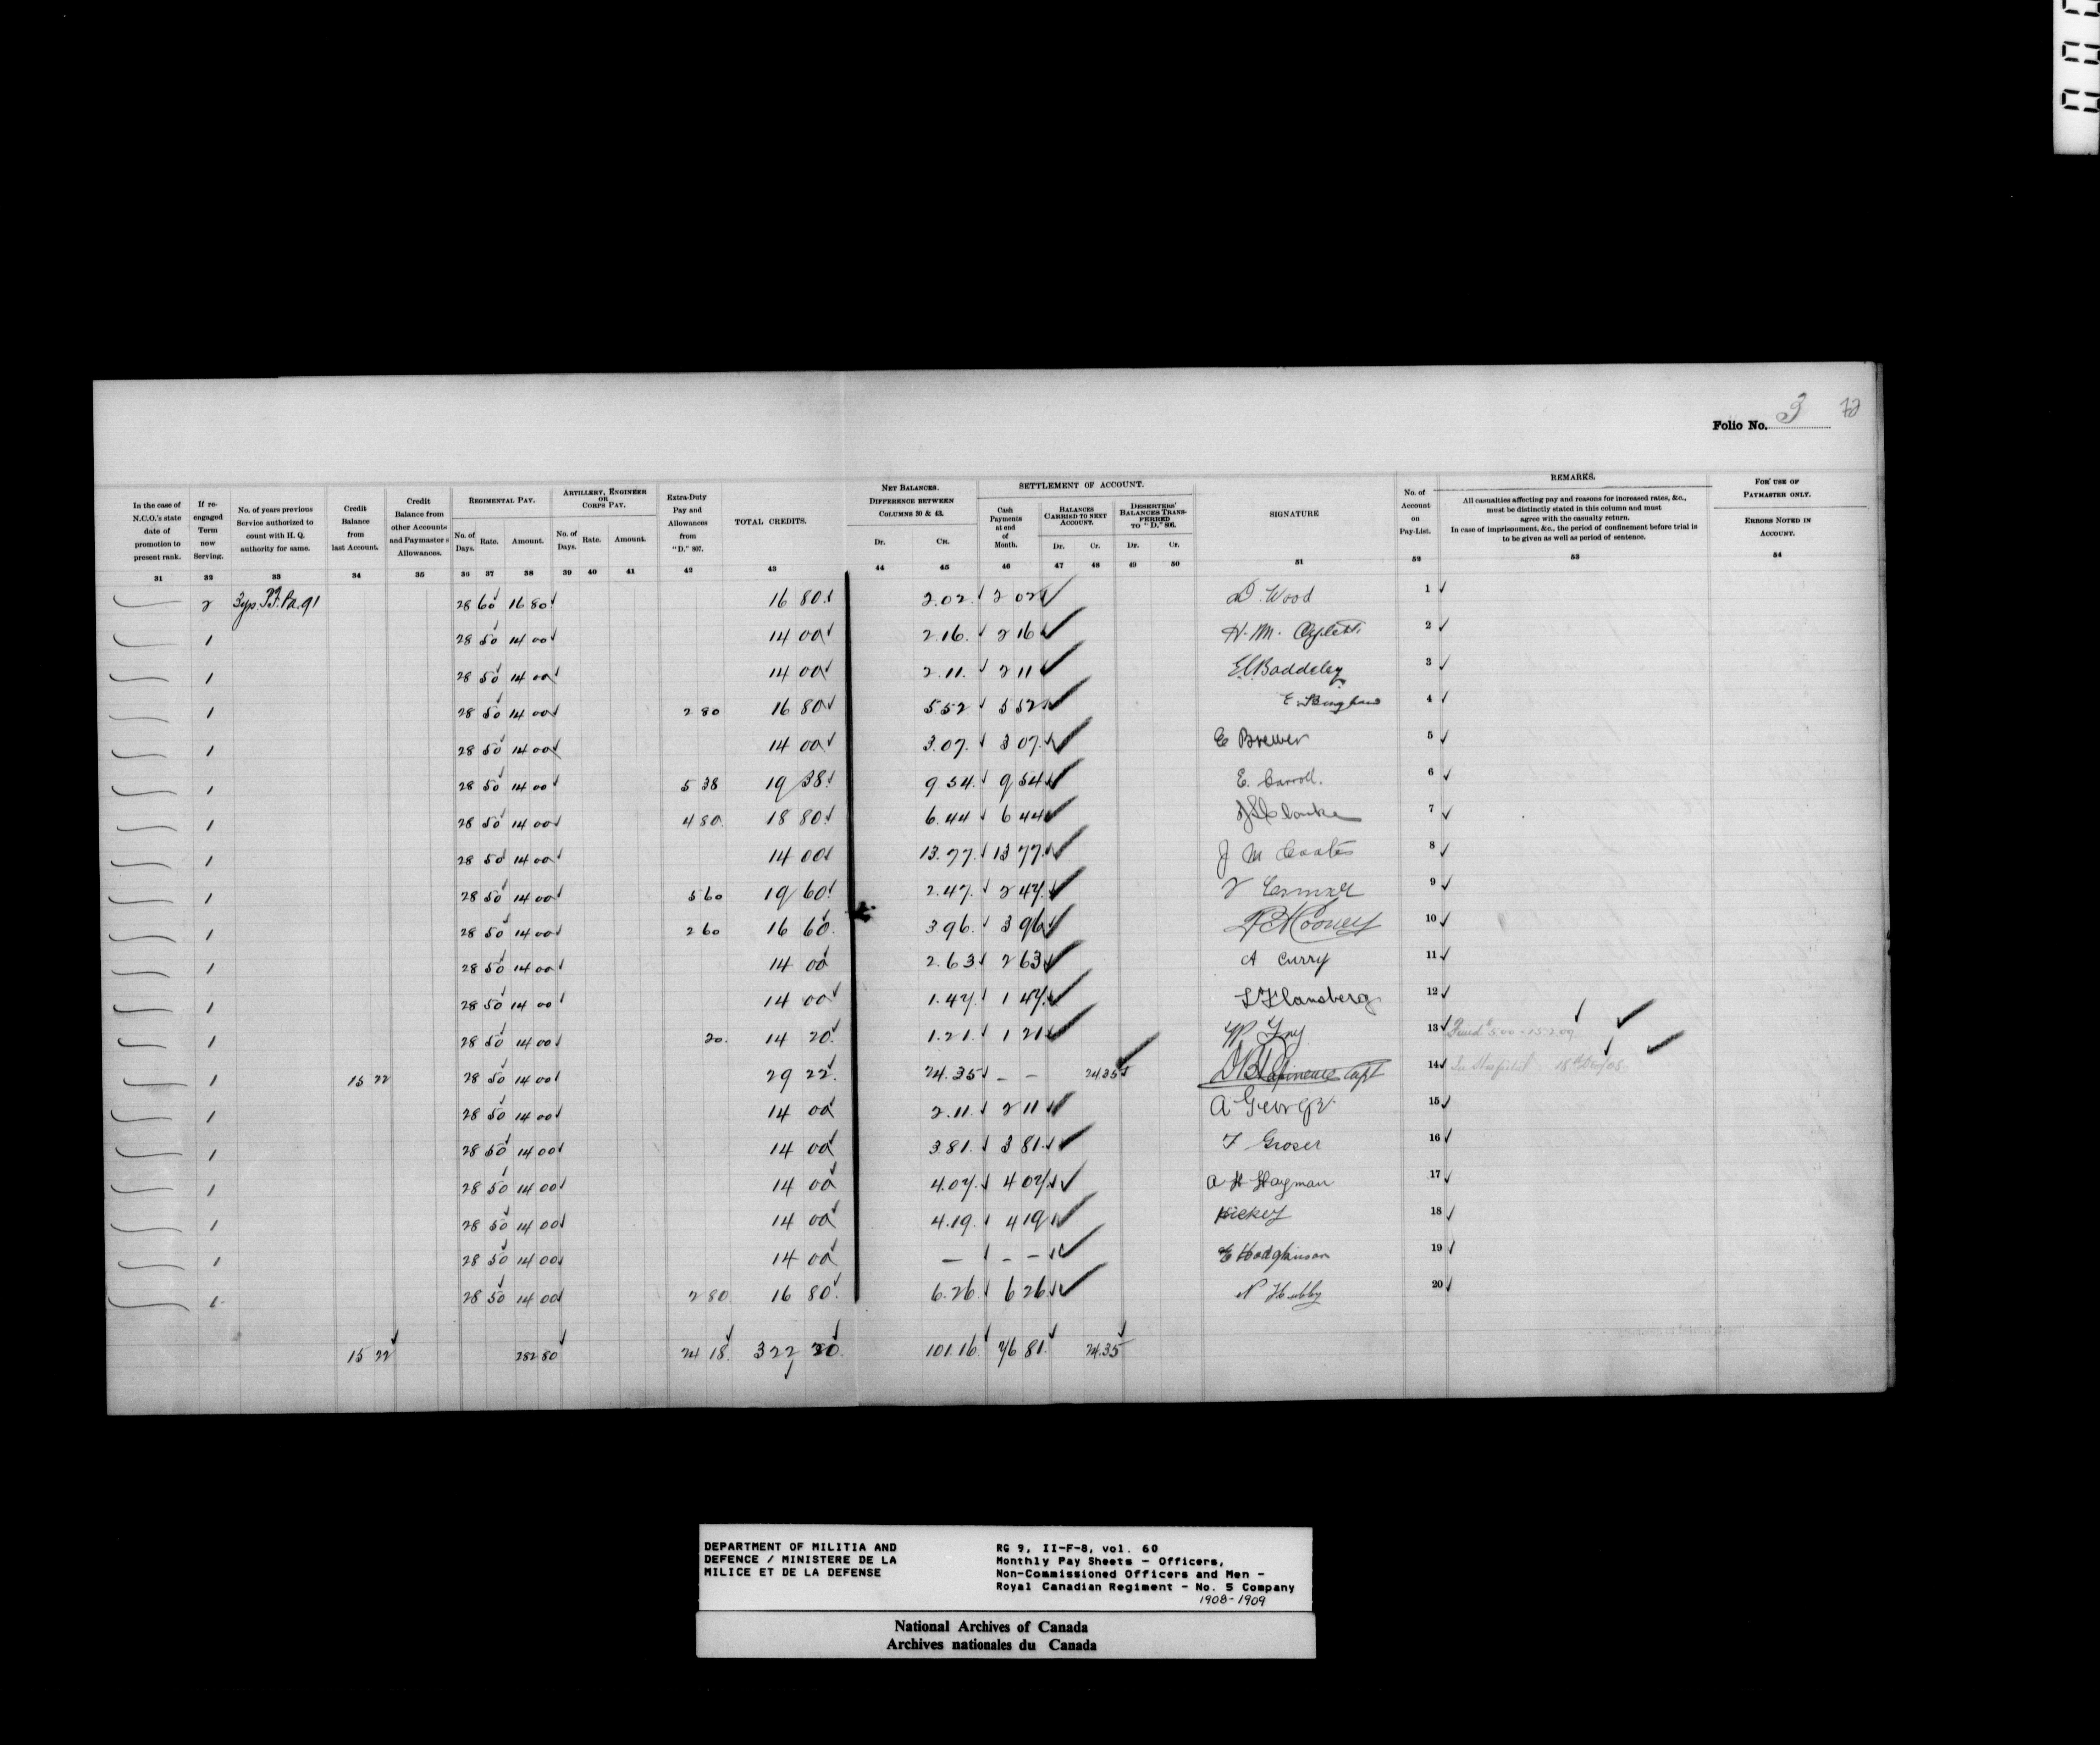 Folio No. 3
In the case of N.C.O.'s state date of promotion to present rank.
If re-engaged Term now Serving.
No. of years previous Service authorized to count with H. Q. authority for same.
Credit Balance from last Account.
Credit Balance from other Accounts and Paymaster s Allowances.
REGIMENTAL PAY.
No. of Days. Rate. Amount.
ARTILLERY, ENGINEER OR CORPS PAY.
No. of Days. Rate. Amount.
Extra-Duty Pay and Allowances from "D." 807.
TOTAL CREDITS.
NET BALANCES. DIFFERENCE BETWEEN COLUMNS 30 & 43.
Dr. CR.
SETTLEMENT OF ACCOUNT.
Cash Payments at end of Month.
BALANCES CARRIED TO NEXT ACCOUNT.
Dr. Cr.
DESERTERS' BALANCES TRANSFERRED TO "D." 806.
Dr. Cr.
SIGNATURE
No. of Account on Pay-List.
REMARKS.
All casualties affecting pay and reasons for increased rates, &c., must be distinctly stated in this column and must agree with the casualty return.
In case of imprisonment, &c., the period of confinement before trial is to be given as well as period of sentence.
FOR USE OF PAYMASTER ONLY.
ERRORS NOTED IN ACCOUNT.
31 32 33 34 35 36 37 38 39 40 41 42 43 44 45 46 47 48 49 50 51 52 53 54
2 3 yrs. 28 60 16 80 16 80 2.02 2 02 D. Wood 1
1 28 50 14 00 14 00 2.16 2 16 H. M. Aylett 2
1 28 50 14 00 14 00 2.11 2 11 Baddeley 3
1 28 50 14 00 2 80 16 80 5 52 5 52 E Bingham 4
1 28 50 14 00 14 00 3.07 3 07 E Brewer 5
1 28 50 14 00 5 38 19 38 9 54 9 54 E. Carroll. 6
1 28 50 14 00 4 80 18 80 6.44 6 44 Clarke 7
1 28 50 14 00 14 00 13.77 13 77 J M Coates 8
1 28 50 14 00 5 60 19 60 2.47 2 47 9
1 28 50 14 00 2 60 16 60 3 96 3 96 Cooney 10
1 28 50 14 00 14 00 2.63 2 63 A Curry 11
1 28 50 14 00 14 00 1.47 1 47 Flansberg 12
1 28 50 14 00 20 14 20 1.21 1 21 Fry 13 Fined
1 15 22 28 50 14 00 29 22 24.35 – – 24.35 Capt 14 In Hospital 18
1 28 50 14 00 14 00 2.11 2 11 A George 15
1 28 50 14 00 14 00 3.81 3 81 F Groser 16
1 28 50 14 00 14 00 4.07 4 07 A H Hayman 17
1 28 50 14 00 14 00 4.19 4 19 Hickey 18
1 28 50 14 00 14 00 – – – E Hodgkinson 19
1 28 50 14 00 2 80 16 80 6.26 6 26 Hubby 20
15 22 282 80 24 18 322 20 101.16 76 81 24.35
DEPARTMENT OF MILITIA AND
DEFENCE / MINISTERE DE LA
MILICE ET DE LA DEFENSE
RG 9, II-F-8, vol. 60
Monthly Pay Sheets - Officers,
Non-Commissioned Officers and Men -
Royal Canadian Regiment - No. 5 Company
1908-1909
National Archives of Canada
Archives nationales du Canada